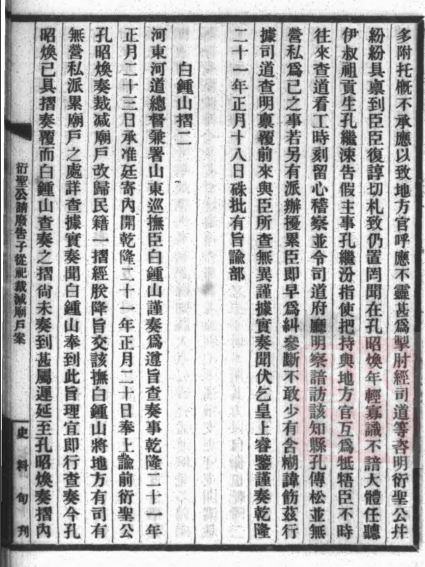 多附托槪不承應以致地方官呼應不靈甚爲掣肘經司道等咨明衍聖公幷
紛紛具稟到臣臣復諄切札致仍置罔聞在孔昭煥年輕寡識不諳大體任聽
伊叔祖貢生孔繼涑告假主事孔繼汾指使把持與地方官互爲牴牾臣不時
往來查道看工時刻留心稽察並令司道府廳明察諳訪該知縣孔傳松並無
營私爲己之事若另有派辦擾累臣即早爲糾參斷不敢少有含糊諱飾茲行
據司道查明稟覆前來與臣所查無異謹據實奏聞伏乞皇上睿鑒謹奏乾隆
二十一年正月十八日硃批有旨諭部
白鍾山摺二
河東河道總督兼署山東巡撫臣白鍾山謹奏爲遵旨查奏事乾隆二十一年
正月二十三日承准廷寄內開乾隆二十一年正月二十日奉上諭前衍聖公
孔昭煥奏裁減廟戶改歸民籍一摺經朕降旨交該撫白鍾山將地方有司有
無營私派累廟戶之處詳查據實奏聞白鍾山奉到此旨理宜即行查奏今孔
昭煥已具摺奏覆而白鍾山查奏之摺尙未奏到甚屬遲延至孔昭煥奏摺內
衍聖公請廢告子從祀裁減廟戶案
史料旬刊